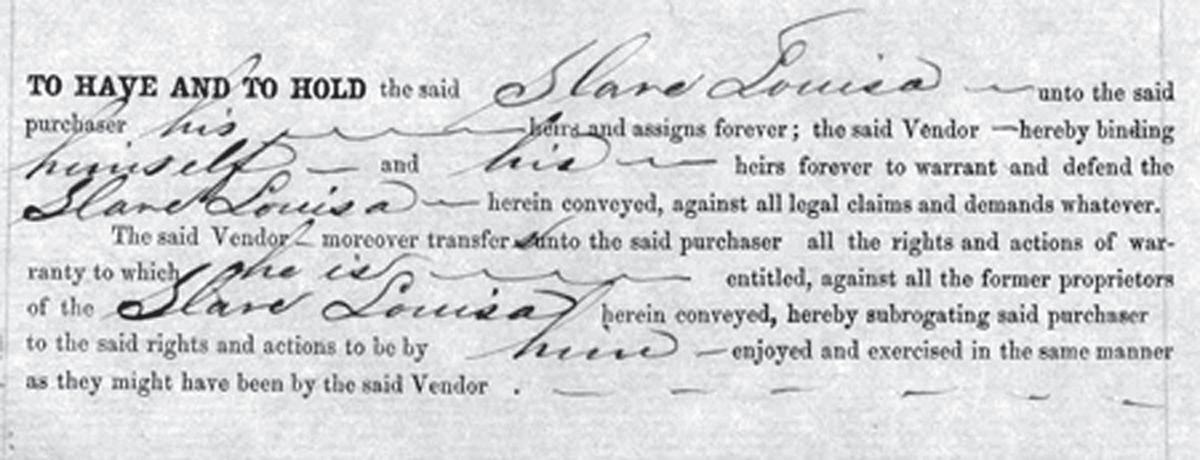 TO HAVE AND TO HOLD the said Slave Louisa unto the said
purchaser his heirs and assigns forever; the said Vendor — hereby binding
himself — and his — heirs forever to warrant and defend the
Slave Louisa — herein conveyed, against all legal claims and demands whatever.
The said Vendor — moreover transfers unto the said purchaser all the rights and actions of war-
ranty to which he is entitled, against all the former proprietors
of the Slave Louisa herein conveyed, hereby subrogating said purchaser
to the said rights and actions to be by him — enjoyed and exercised in the same manner
as they might have been by the said Vendor .